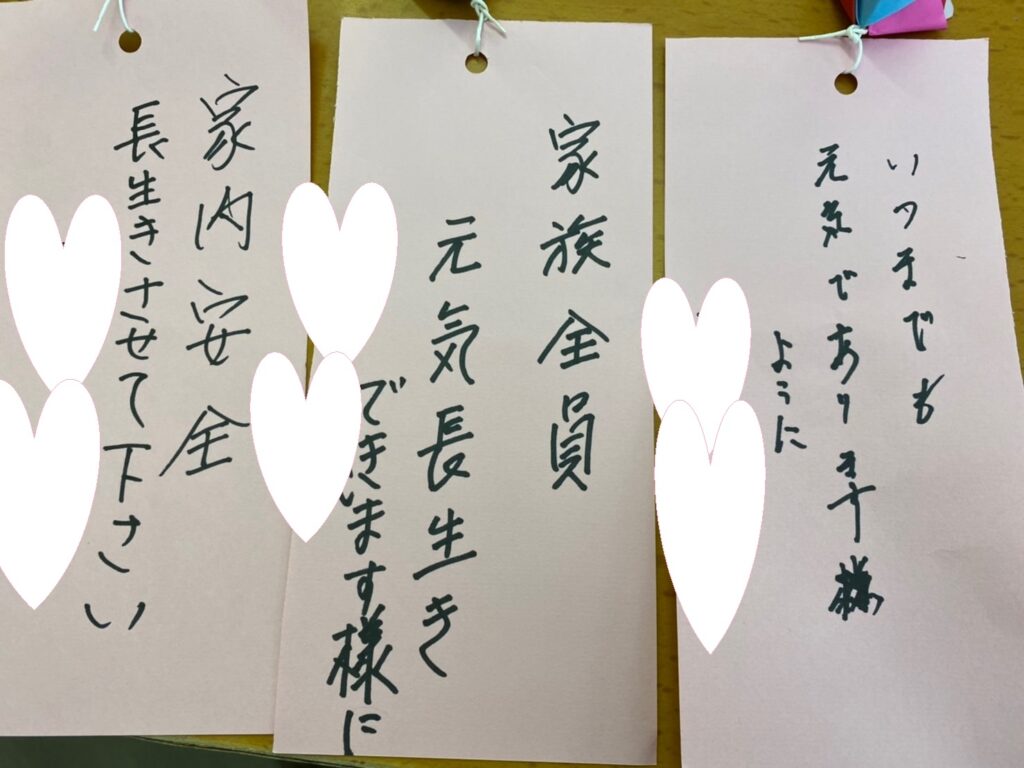 いつまでも
元気であります様
ように
家族全員
元気長生き
できます様に
家内安全
長生きさせて下さい